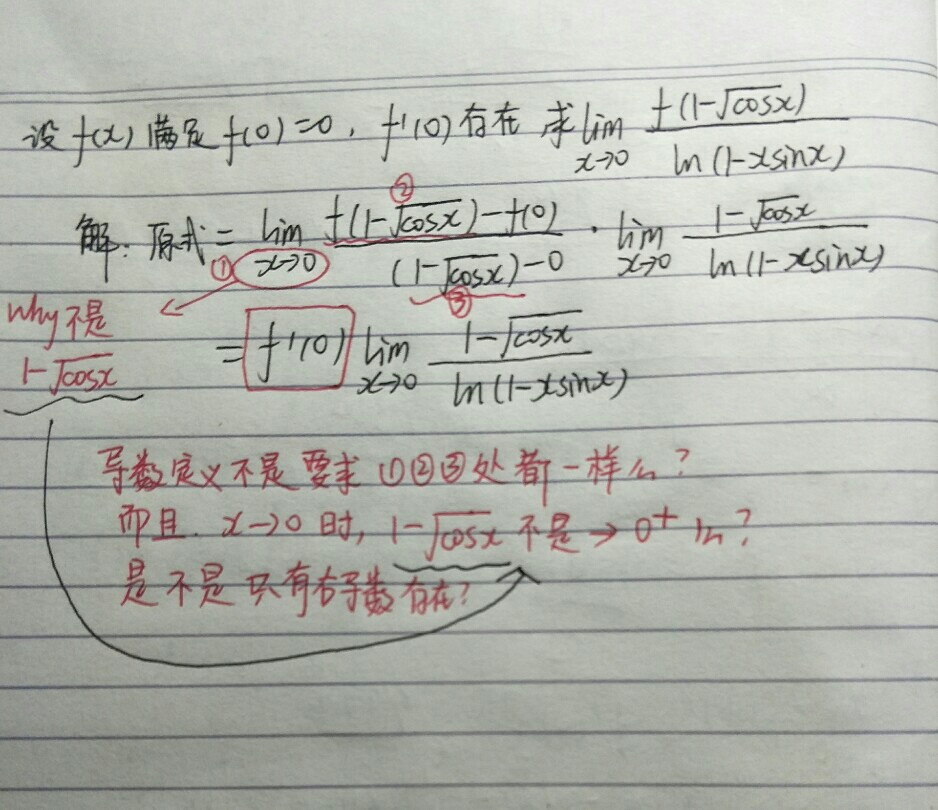 设 f(x) 满足 f(0)=0, f'(0) 存在 求 lim x→0 f(1-√cosx) / ln(1-xsinx)
解: 原式 = lim x→0 f(1-√cosx)-f(0) / (1-√cosx)-0 · lim x→0 1-√cosx / ln(1-xsinx)
① ② ③
why 不是
1-√cosx
= f'(0) lim x→0 1-√cosx / ln(1-xsinx)
导数定义不是要求 ①②③处都一样么?
而且 x→0 时, 1-√cosx 不是→0⁺ 么?
是不是只有右导数存在?